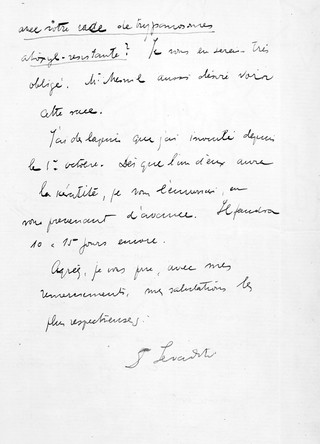 avec votre race de trypanosomes
atoxyl-resistante? Je vous en serai très
obligé. Mr Mesnil aussi désire voir
cette race.
J'ai des lapins que j'ai inoculé depuis
le 1er octobre. Dès que l'un d'eux aura
la kératite, je vous l'enverrai, en
vous prevenant d'avance. Il faudra
10 à 15 jours encore.
Agréez, je vous prie, avec mes
remerciements, mes salutations les
plus respectueuses.